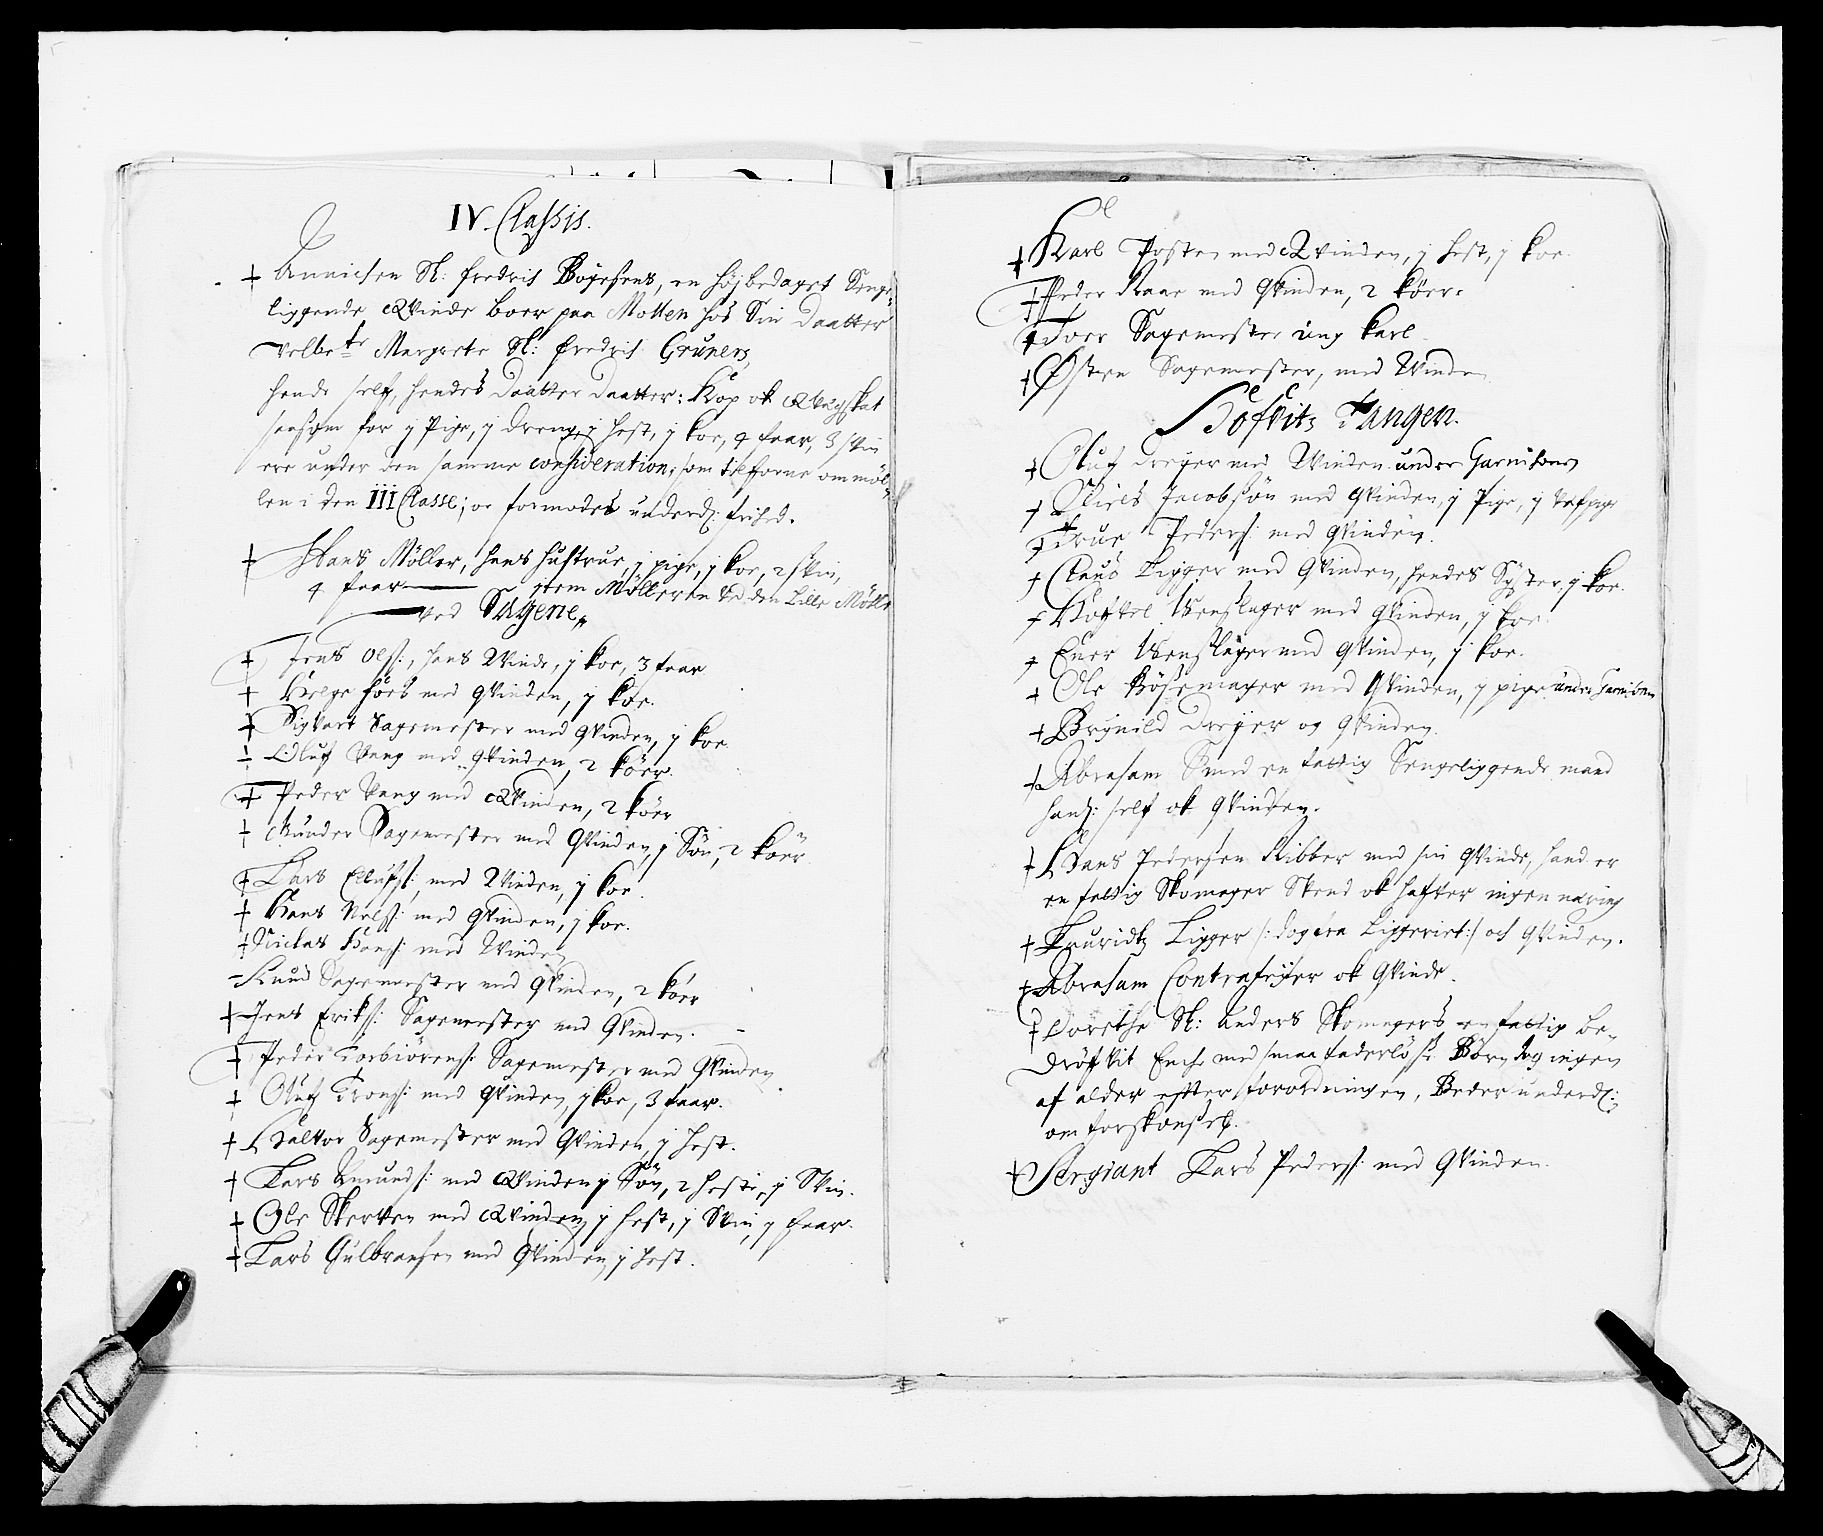 IV. Classis.
Annichen Sl: fredrich Bøgesens, en højbedaget Senge=
liggende Qvinde boer paa Mollen hos Sin Daatter
velbe: te Margrete Sl: fredrich Gruners,
hende self, hendes daatter daatter: Kop ok Qvegskat
saasom for j Pige, j dreng, j hest, j koe, 4 faar, 3 svin
ere under den samme consideration, som tilforne om möl=
len i den III Classe; oc formodes underd: frihed.
Hans Möller, hans hustrue, j pige, j koe, 2 svin,
4 faar item Mölleren ved den Lille Mölle
ved Sagene
Jens Ols:, hans Qvinde, j koe, 3 faar
Helge föes med Qvinden, j koe.
Sigvart Sagemester med Qvinden, j koe
Oluf Vang med Qvinden, 2 köer.
Peder Vang med Qvinden, 2 köer
Gunder Sagemester med Qvinden, j Sön, 2 köer
Lars Ellufs: med Qvinden, j koe.
Hans Nels: med Qvinden, j koe.
Niclas Hans: med Qvinden
Knud Sagemester med Qvinden, 2 köer
Jens Eriks: Sagemester med Qvinden.
Peder Torbiörens: Sagemester med Qvinden
Oluf Trons: med Qvinden, j koe, 3 faar.
Halvor Sagemester med Qvinden, j hest.
Lars Amunds: med Qvinden j Sön, 2 heste, j Svin.
Ole Skerven med Qvinden, j hest, j Svin, 7 faar.
Lars Gulbransen med Qvinden, j hest.
Karl Posten med Qvinden, j hest, j koe.
Peder Raae med Qvinden, 2 köer.
Iver Sagemester ung karl
Østen Sagemester, med Qvinden
Hofvits Tangen.
Oluf Dreyer med Qvinden under Garnisonen
Niels Jacobsøn med Qvinden, j Pige,
True Peders: med Qvinden.
Claus Ligger med Qvinden, hendes Syster, j koe.
med Qvinden, j koe
Ener med Qvinden, j koe.
Ole Bøssemager med Qvinden, j pige under Garnison
Brynild Dreyer og Qvinden
Abraham Smed en fattig Sengeliggende mand
hand: self ok Qvinden.
Hans Pedersen Ribber med sin Qvinde, hand er
en fattig Skomager Svend ok hafver ingen næring
Lauridtz Ligger (: dog era Liggeriet:) och Qvinden.
Abraham Contrafeijer ok Qvinde.
Dorethe Sl: Anders Skomagers en fattig be=
dröfvit Enche med smaa faderløse Børn dog ingen
af alder efter forordningen, Beder underd:
om forskonsel.
Sergiant Lars Peders: med Qvinden.